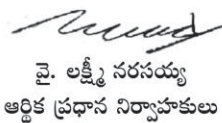 వై. లక్ష్మీ నరసయ్య
ఆర్థిక ప్రధాన నిర్వాహకులు